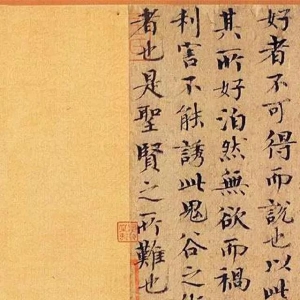 好者不可得而說也以此
其所好泊然無欲而禍
利害不能誘此鬼谷之
者也是聖賢之所難也